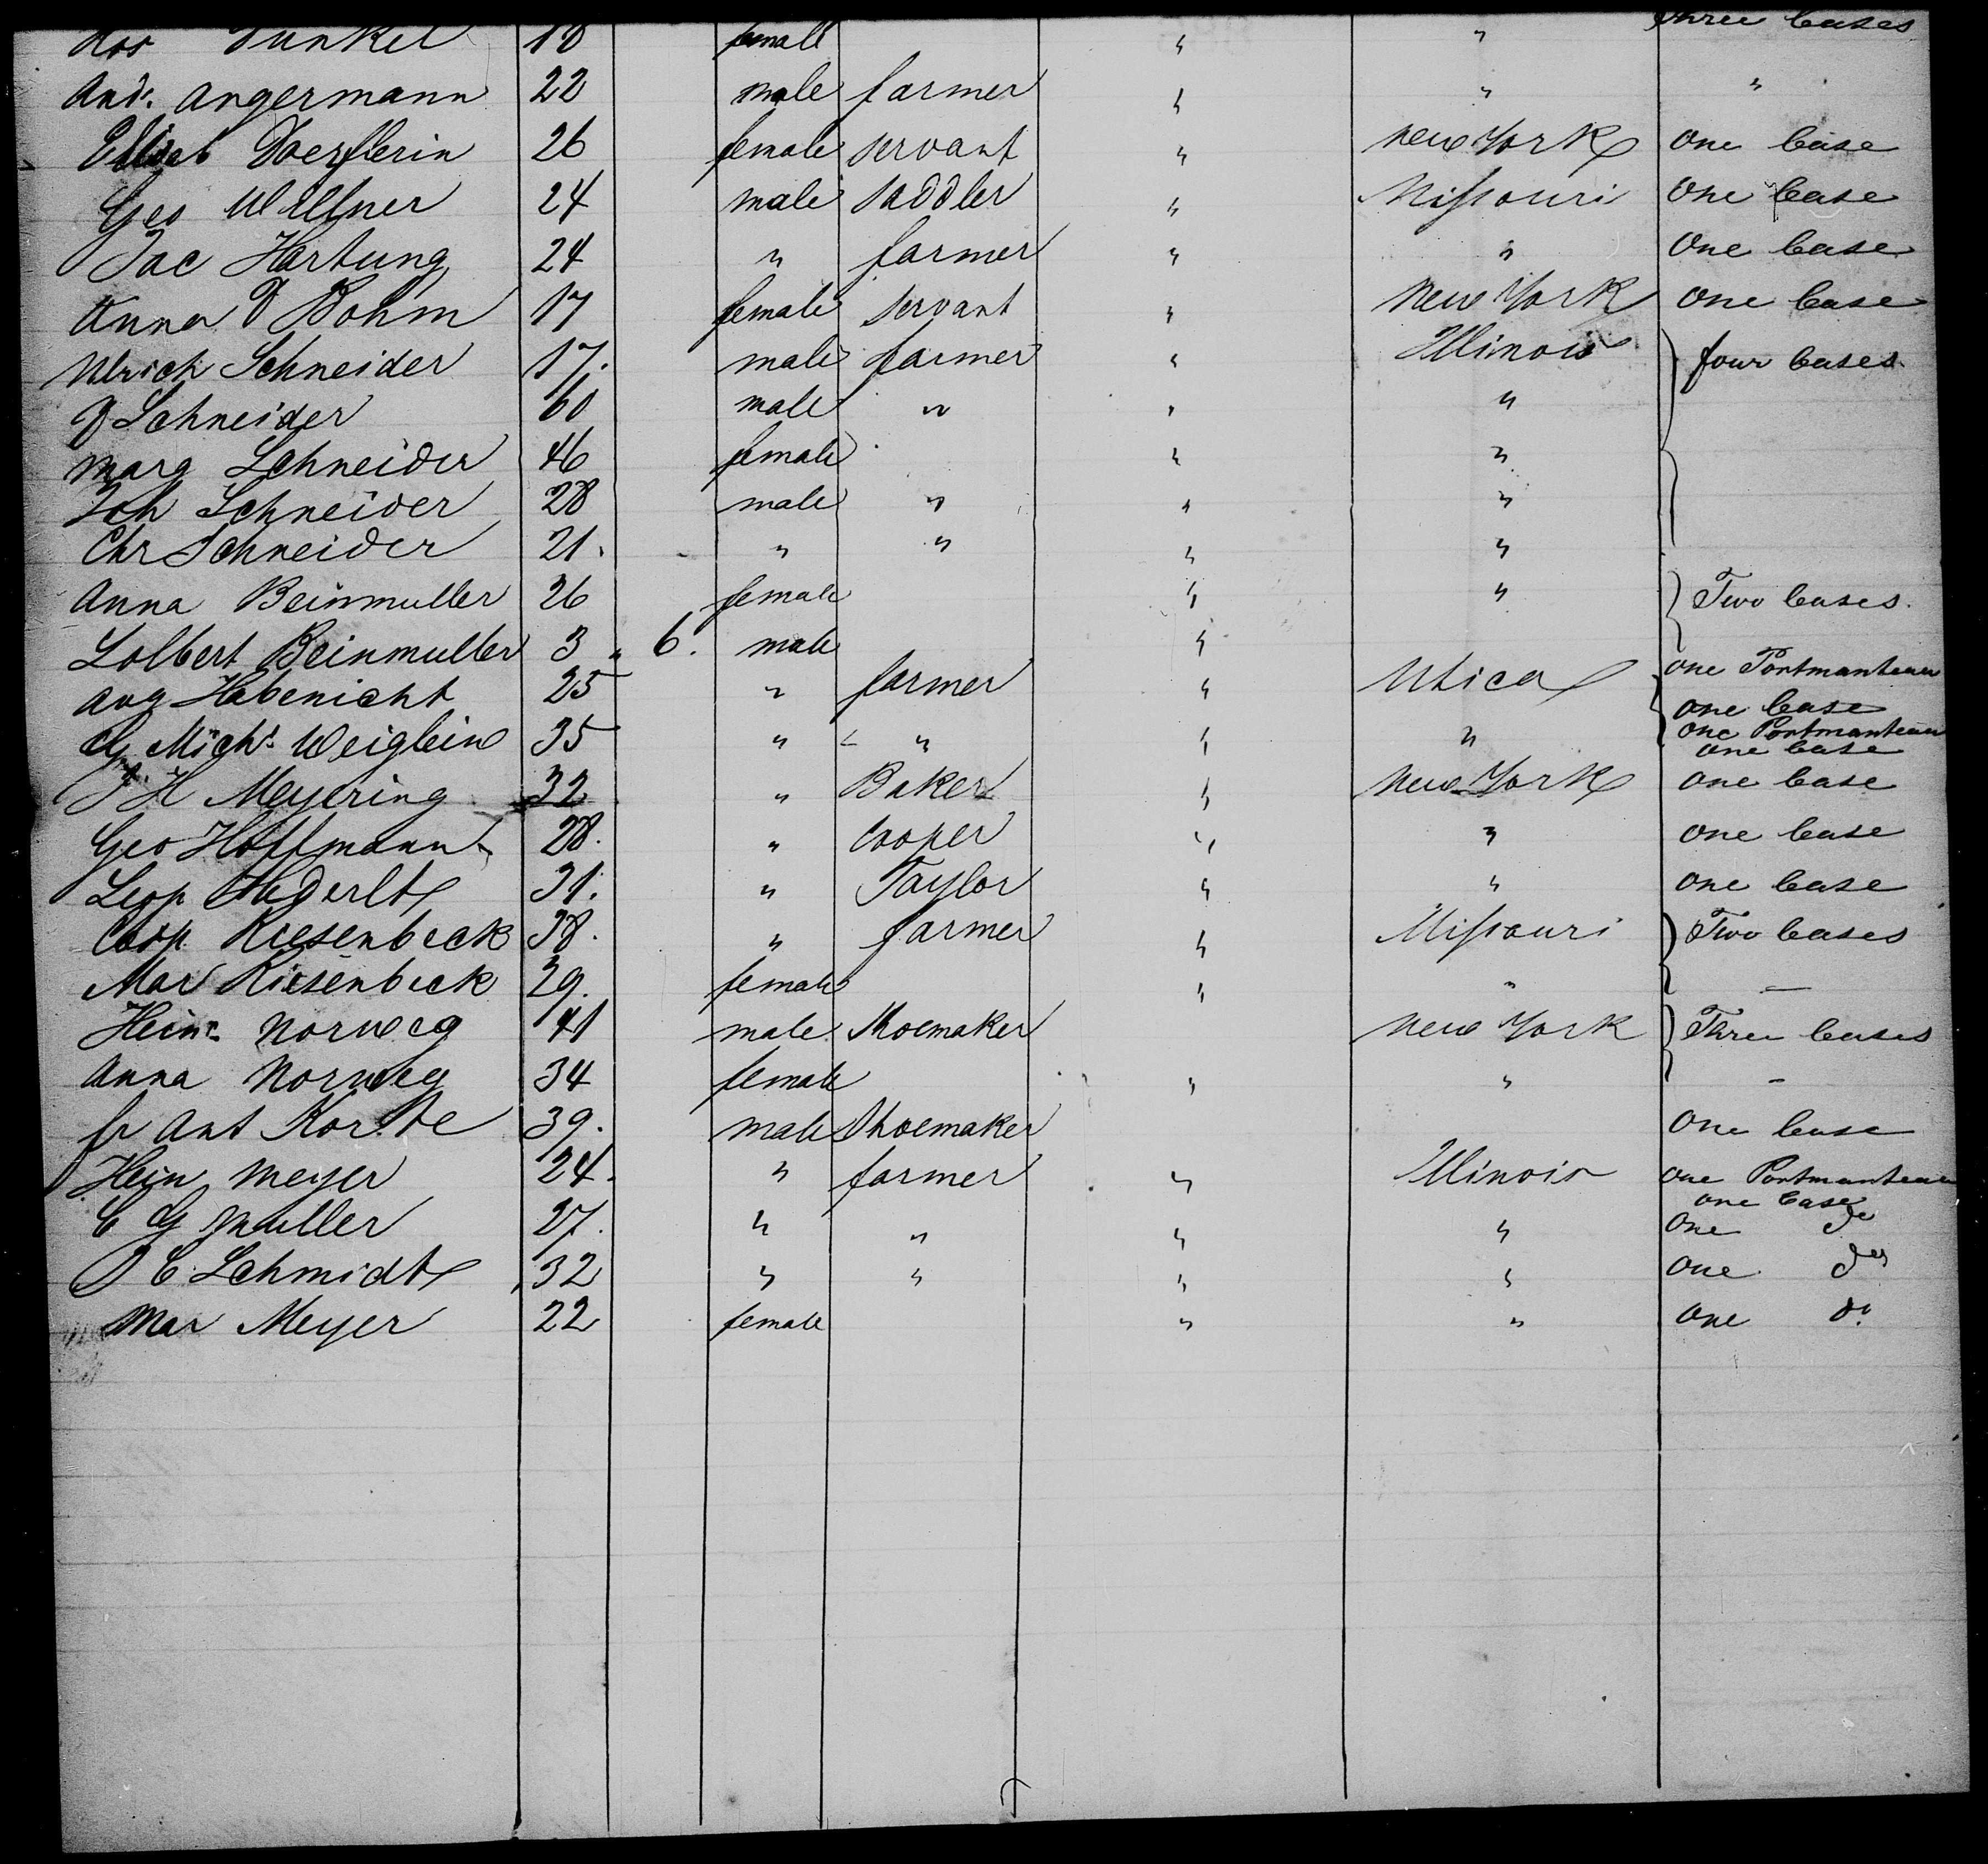 Dunkel 18 female " " Three Cases
Andr. Angermann 22 male farmer " " "
Elisab Doerflerin 26 female servant " New York One Case
Geo Willner 24 male saddler " Missouri One Case
Jac Hartung 24 " farmer " " One Case
Anna D Bohm 17 female servant " New York One Case
Ulrich Schneider 17. male farmer " Illinois } four Cases.
D Schneider 60 male " " "
Marg Schneider 46 female " "
Joh Schneider 28 male " " "
Chr Schneider 21. " " " "
Anna Beinmuller 26 female " " } Two Cases.
Lolbert Beinmuller 3 " 6. male "
Aug Habenicht 25 " farmer " Utica { One Portmanteau
one Case
G. Mich. Weiglein 35 " " " " One Portmanteau
one Case
J H Meyering 32 " Baker " New York One Case
Geo Hoffmann 28. " Cooper " " One Case
Leop 31. " Taylor " " One Case
Casp. Riesenbeck 38. " farmer " Missouri } Two Cases
Mar Riesenbeck 29. female " " —
Heinr. Norweg 41 male Shoemaker New York } Three Cases
Anna Norweg 34 female " " –
fr Ant Korste 39. male Shoemaker One Case
Hein Meyer 24. " farmer " Illinois One Portmanteau
one Case
C G Muller 27. " " " " One do
J C Schmidt 32 " " " " One do
Mar Meyer 22 female " " One do.